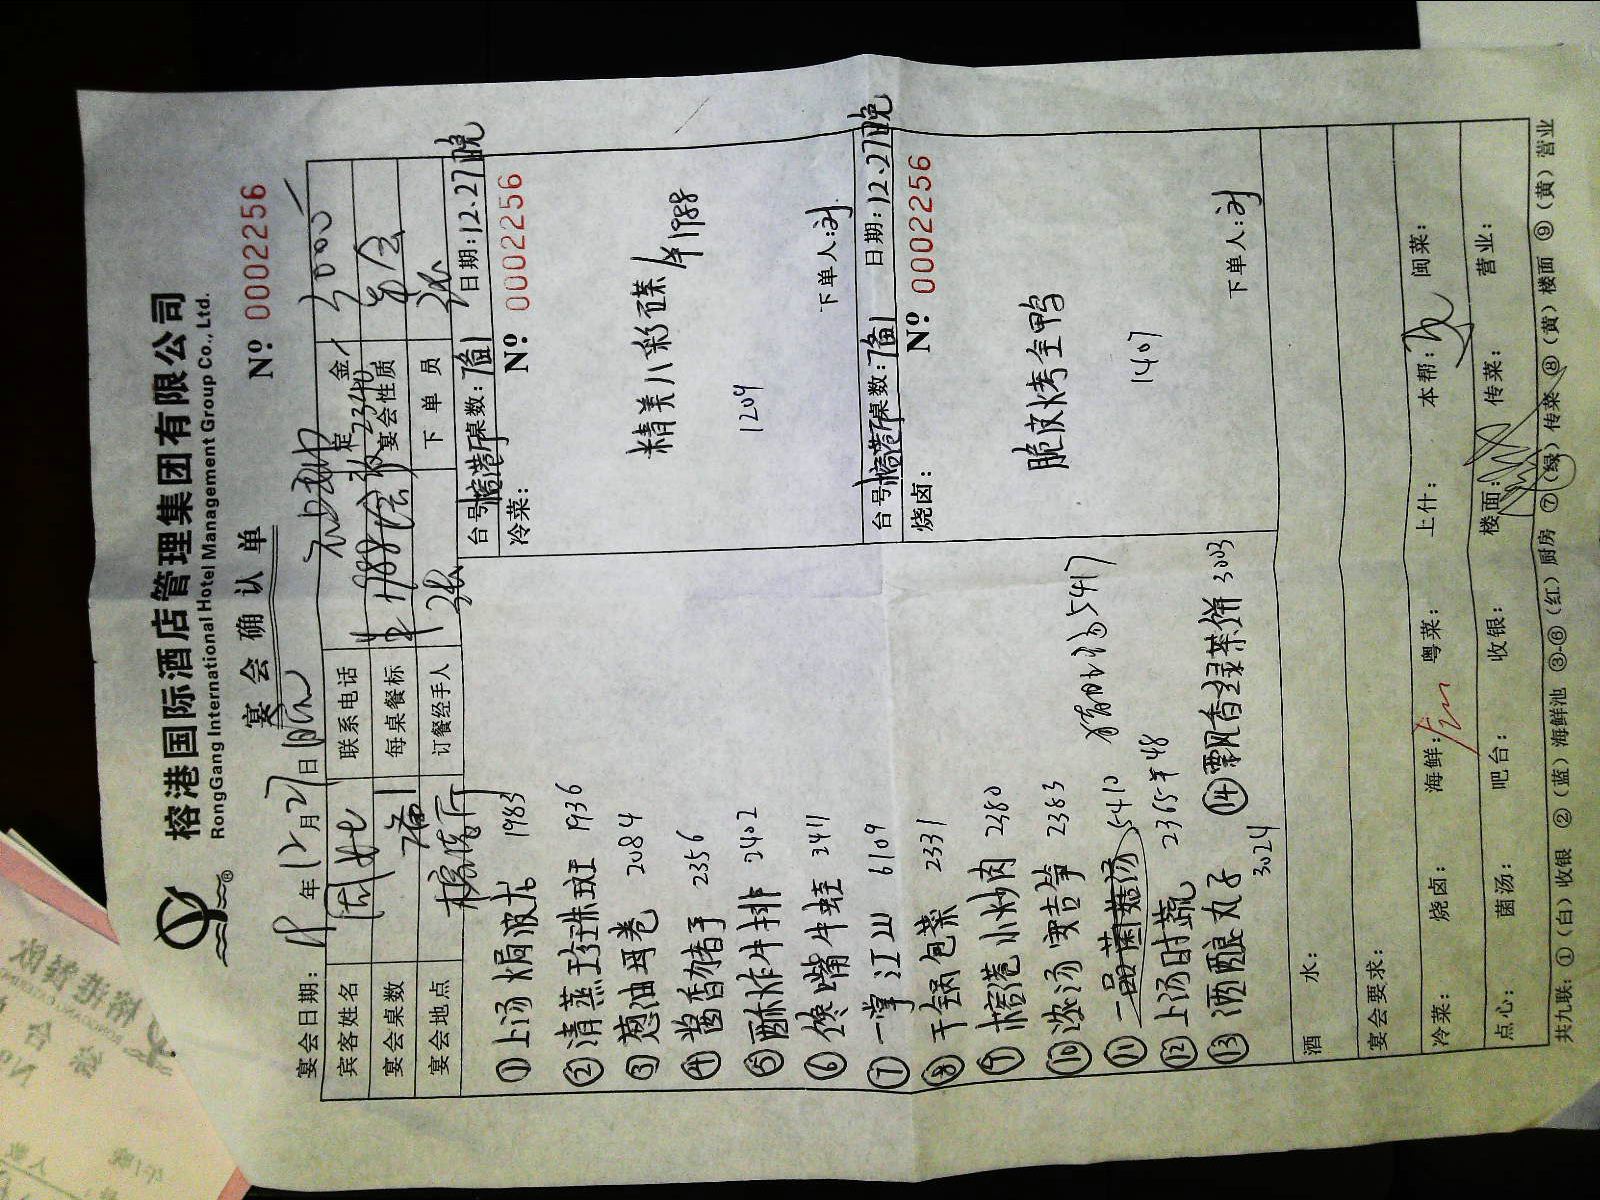 榕港国际酒店管理集团有限公司
RongGang International Hotel Management Group Co., Ltd.
宴会确认单
№ 0002256
宴会日期： 年12月27日晚
宾客姓名 联系电话 定金 3000
宴会桌数 每桌餐标 1988 宴会性质
宴会地点 榕港厅 订餐经手人 张 下单员 张
①上汤焗波龙 1983
②清蒸珍珠斑 1936
③葱油蚌卷 2084
④酱香猪手 2356
⑤酥炸牛排 2402
⑥馋嘴牛蛙 2411
⑦一掌江山 6109
⑧干锅包菜 2331
⑨榕港小炒肉 2380
⑩浓汤 笋 2383
⑪一品菌菇汤 5410 5417
⑫上汤时蔬 2365 ¥48
⑬酒酿丸子 3024
⑭飘香绿茶饼 3003
台号：榕港厅 桌数： 日期：12.27晚
冷菜： № 0002256
精美八彩碟 ¥1988
1209
下单人：刘
台号：榕港厅 桌数： 日期：12.27晚
烧卤： № 0002256
脆皮烤全鸭
1407
下单人：刘
酒 水：
宴会要求：
冷菜： 烧卤： 海鲜： 粤菜： 上什： 本帮： 闽菜：
点心： 菌汤： 吧台： 收银： 楼面： 传菜： 营业：
共九联：①（白）收银 ②（蓝）海鲜池 ③-⑥（红）厨房 ⑦（绿）传菜 ⑧（黄）楼面 ⑨（黄）营业